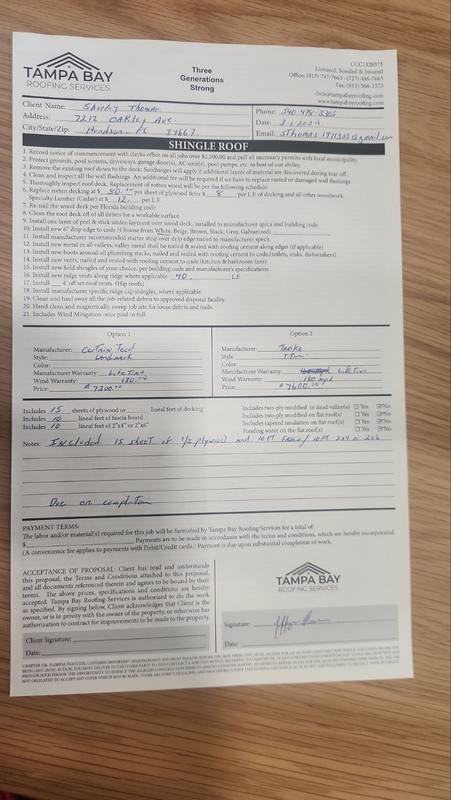 TAMPA BAY
ROOFING SERVICES
Three
Generations
Strong
CGC1328373
Licensed, Bonded & Insured
Office: (813) 797-7663 - (727) 496-7663
Fax: (813) 566-1373
chris@tampabayroofing.com
www.tampabayroofing.com
Client Name: Shirley Thomas
Address: 7212 Oakley Ave.
City/State/Zip: Hundson FL 34667
Phone: 540 478 3305
Date:
Email:
SHINGLE ROOF
1. Record notice of commencement with clerks office on all jobs over $2,500.00 and pull all necessary permits with local municipality.
2. Protect grounds, pool screens, driveways, garage door(s), AC unit(s), pool pumps, etc. to best of our ability.
3. Remove the existing roof down to the deck; Surcharges will apply if additional layers of material are discovered during tear off.
4. Clean and inspect all the wall flashings. An additional fee will be required if we have to replace rusted or damaged wall flashings.
5. Thoroughly inspect roof deck. Replacement of rotten wood will be per the following schedule:
6. Replace rotten decking at $ 80.00 per sheet of plywood &/or $ 8 per L.F. of decking and all other woodwork.
Specialty Lumber (Cedar) at $ 12. per L.F.
7. Re-nail the wood deck per Florida building code.
8. Clean the roof deck off of all debris for a workable surface.
9. Install one layer of peel & stick underlayment over wood deck, installed to manufacturer specs and building code.
10. Install new 6" drip edge to code (Choose from White, Beige, Brown, Black, Gray, Galvanized)
11. Install manufacturer recommended starter strip over drip edge nailed to manufacturer specs.
12. Install new metal in all valleys, valley metal shall be nailed & sealed with roofing cement along edges (if applicable)
13. Install new boots around all plumbing stacks, nailed and sealed with roofing cement to code
14. Install new vents, nailed and sealed with roofing cement to code (kitchen & bathroom fans)
15. Install new field shingles of your choice, per building code and manufacturer's specifications.
16. Install new ridge vents along ridge where applicable 40 L.F.
17. Install 4' off set roof vents. (Hip roofs)
18. Install manufacturer specific ridge cap shingles, where applicable.
19. Clean and haul away all the job-related debris to approved disposal facility.
20. Hand clean and magnetically sweep job site for loose debris and nails.
21. Includes Wind Mitigation once paid in full.
Option 1
Manufacturer: Certain Teed
Style: Landmark
Color:
Manufacturer Warranty: Life Time
Wind Warranty: 130
Price: $ 7300.00
Option 2
Manufacturer: Tamko
Style: Titan
Color:
Manufacturer Warranty: Life Time
Wind Warranty: mph
Price: $ 7600.00
Includes 15 sheets of plywood or lineal feet of decking
Includes 10 lineal feet of fascia board
Includes 10 lineal feet of 2"x4" or 2"x6"
Includes two-ply modified in dead valley(s) Yes No
Includes two-ply modified on flat roof(s) Yes No
Includes tapered insulation on flat roof(s) Yes No
Ponding water on the flat roof(s) Yes No
Notes: Included 15 sheet of 1/2 plywood and 10 FT Fascia / 10 FT 2x4 or 2x6
Due on completion
PAYMENT TERMS:
The labor and/or material(s) required for this job will be furnished by Tampa Bay Roofing Services for a total of:
$ Payments are to be made in accordance with the terms and conditions, which are hereby incorporated
(A convenience fee applies to payments with Debit/Credit cards.) Payment is due upon substantial completion of work.
ACCEPTANCE OF PROPOSAL: Client has read and understands
this proposal, the Terms and Conditions attached to this proposal,
and all documents referenced therein and agrees to be bound by their
terms. The above prices, specifications and conditions are hereby
accepted. Tampa Bay Roofing Services is authorized to do the work
as specified. By signing below, Client acknowledges that Client is the
owner, or is in privity with the owner of the property, or otherwise has
authorization to contract for improvements to be made to the property.
Client Signature:
Date:
TAMPA BAY
ROOFING SERVICES
Signature:
Date: